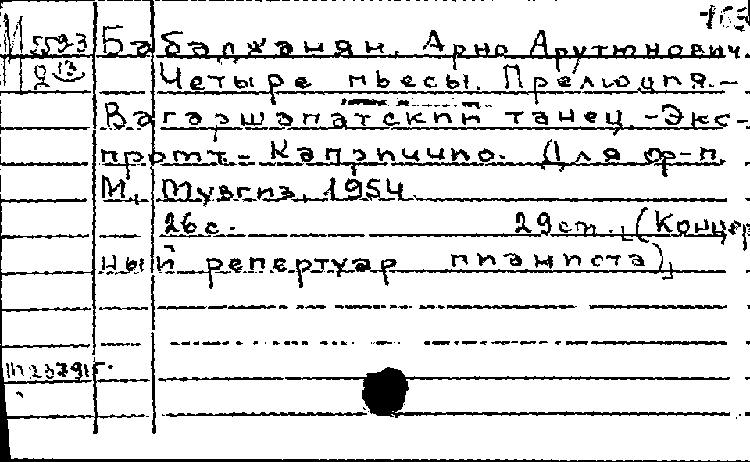 165
М 5593 Бабаджанян, Арно Арутюнович.
2 13 Четыре пьесы. Прелюдия.-
Вагаршапатский танец.-Экс-
промт.- Каприччио. Для ф-п.
М., Музгиз, 1954.
26 с. 29 см. (Концерт
ный репертуар пианиста)